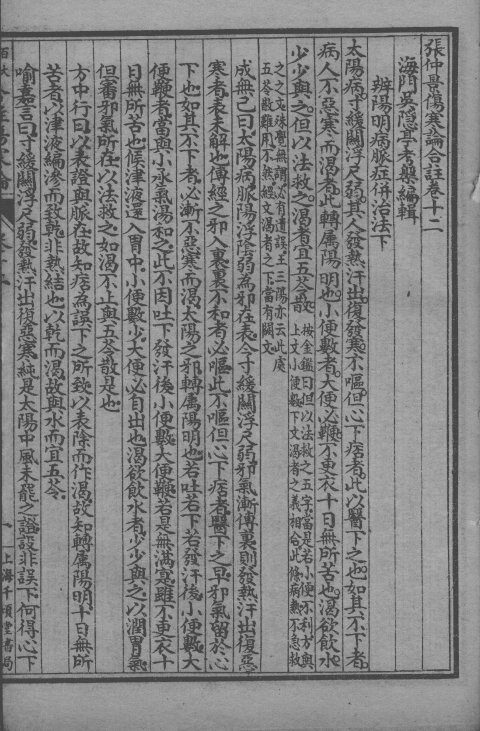 張仲景傷寒論合註卷十二
海門吳隱亭考槃編輯
辨陽明病脈症併治法下
太陽病寸緩關浮尺弱其人發熱汗出復發寒不嘔但心下痞者此以醫下之也如其不下者
病人不惡寒而渴者此轉屬陽明也小便數者大便必鞕不更衣十日無所苦也渴欲飲水
少少與之但以法救之渴者宜五苓散
按金鑑曰但以法救之五字當是若小便不利方與
上文小便數下文渴者之義相合此條病熱不急救
之之文殊覺無謂必有遺誤王三陽亦云此處
五苓散難用不然經文渴者之下當有闕文
成無己曰太陽病脈陽浮陰弱為邪在表今寸緩關浮尺弱邪氣漸傳裏則發熱汗出復惡
寒者表未解也傳經之邪入裏裏不和者必嘔此不嘔但心下痞者醫下之早邪氣留於心
下也如其不下者必漸不惡寒而渴太陽之邪轉屬陽明也若吐若下若發汗後小便數大
便鞕者當與小承氣湯和之此不因吐下發汗後小便數大便鞕若是無滿寔雖不更衣十
日無所苦也候津液還入胃中小便數少大便必自出也渴欲飲水者少少與之以潤胃氣
但審邪氣所在以法救之如渴不止與五苓散是也
方中行曰以表證與脈在故知痞為誤下之所致以表除而作渴故知轉屬陽明十日無所
苦者以津液編滲而致乾非熱結也以乾而渴故與水而宜五苓
喻嘉言曰寸緩關浮尺弱發熱汗出復惡寒純是太陽中風未罷之證設非誤下何得心下
一
上海千頃堂書局